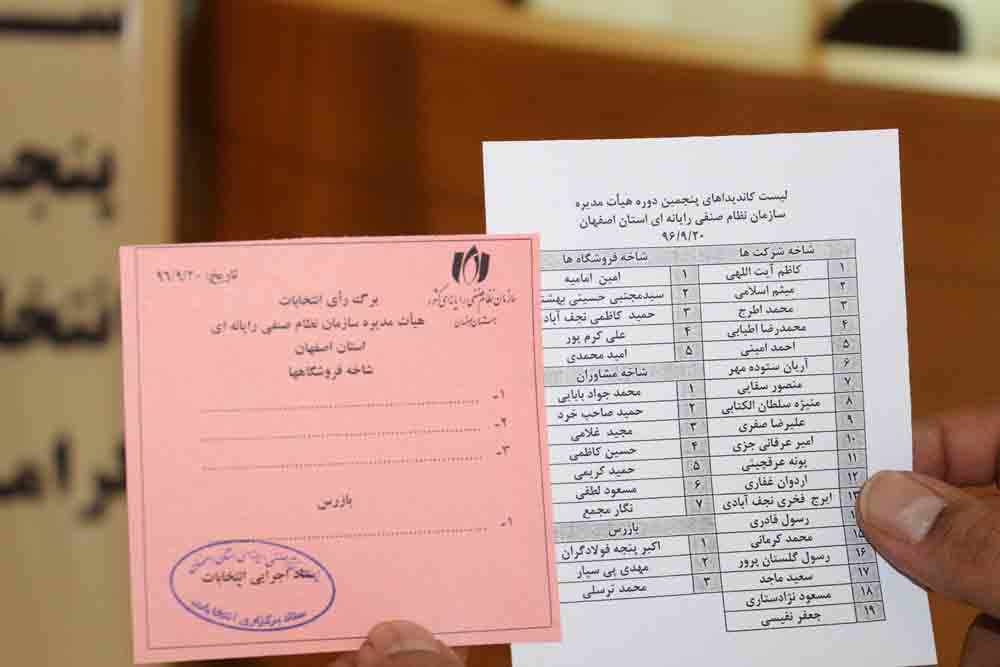 پنجمـ
تاریخ: ۹۶/۹/۲۰
سازمان نظام صنفی رایانه‌ای کشور
برگ رأی انتخابات
هیأت مدیره سازمان نظام صنفی رایانه ای
استان اصفهان
شاخه فروشگاهها
۱-
۲-
۳-
بازرس
۱-
ستاد اجرایی انتخابات
ستاد برگزاری انتخابات
لیست کاندیداهای پنجمین دوره هیأت مدیره
سازمان نظام صنفی رایانه ای استان اصفهان
۹۶/۹/۲۰
شاخه شرکت ها
۱ کاظم آیت اللهی
۲ میثم اسلامی
۳ محمد اطرج
۴ محمدرضا اطیابی
۵ احمد امینی
۶ آریان ستوده مهر
۷ منصور سقایی
۸ منیژه سلطان الکتابی
۹ علیرضا صفری
۱۰ امیر عرفانی جزی
۱۱ پونه عرقچینی
۱۲ اردوان غفاری
۱۳ ایرج فخری نجف آبادی
رسول قادری
۱۵ محمد کرمانی
۱۶ رسول گلستان پرور
۱۷ سعید ماجد
۱۸ مسعود نژادستاری
۱۹ جعفر نفیسی
شاخه فروشگاه ها
۱ امین امامیه
۲ سیدمجتبی حسینی بهشتـ
۳ حمید کاظمی نجف آباد
۴ علی کرم پور
۵ امید محمدی
شاخه مشاوران
۱ محمد جواد بابایی
۲ حمید صاحب خرد
۳ مجید غلامی
۴ حسین کاظمی
۵ حمید کریمی
۶ مسعود لطفی
۷ نگار مجمع
بازرس
۱ اکبر پنجه فولادگران
۲ مهدی پی سپار
۳ محمد ترسلی